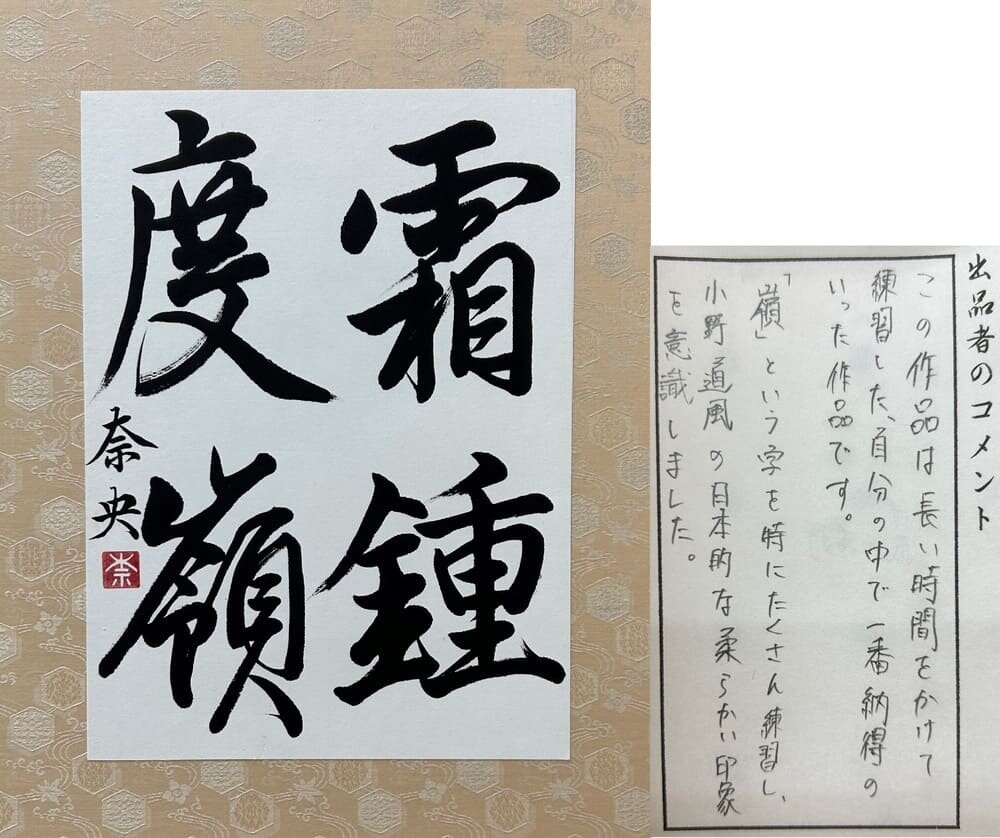 霜鍾
度嶺
奈央
奈
出品者のコメント
この作品は長い時間をかけて
練習した、自分の中で一番納得の
いった作品です。
「嶺」という字を特にたくさん練習し、
小野道風の日本的な柔らかい印象
を意識しました。